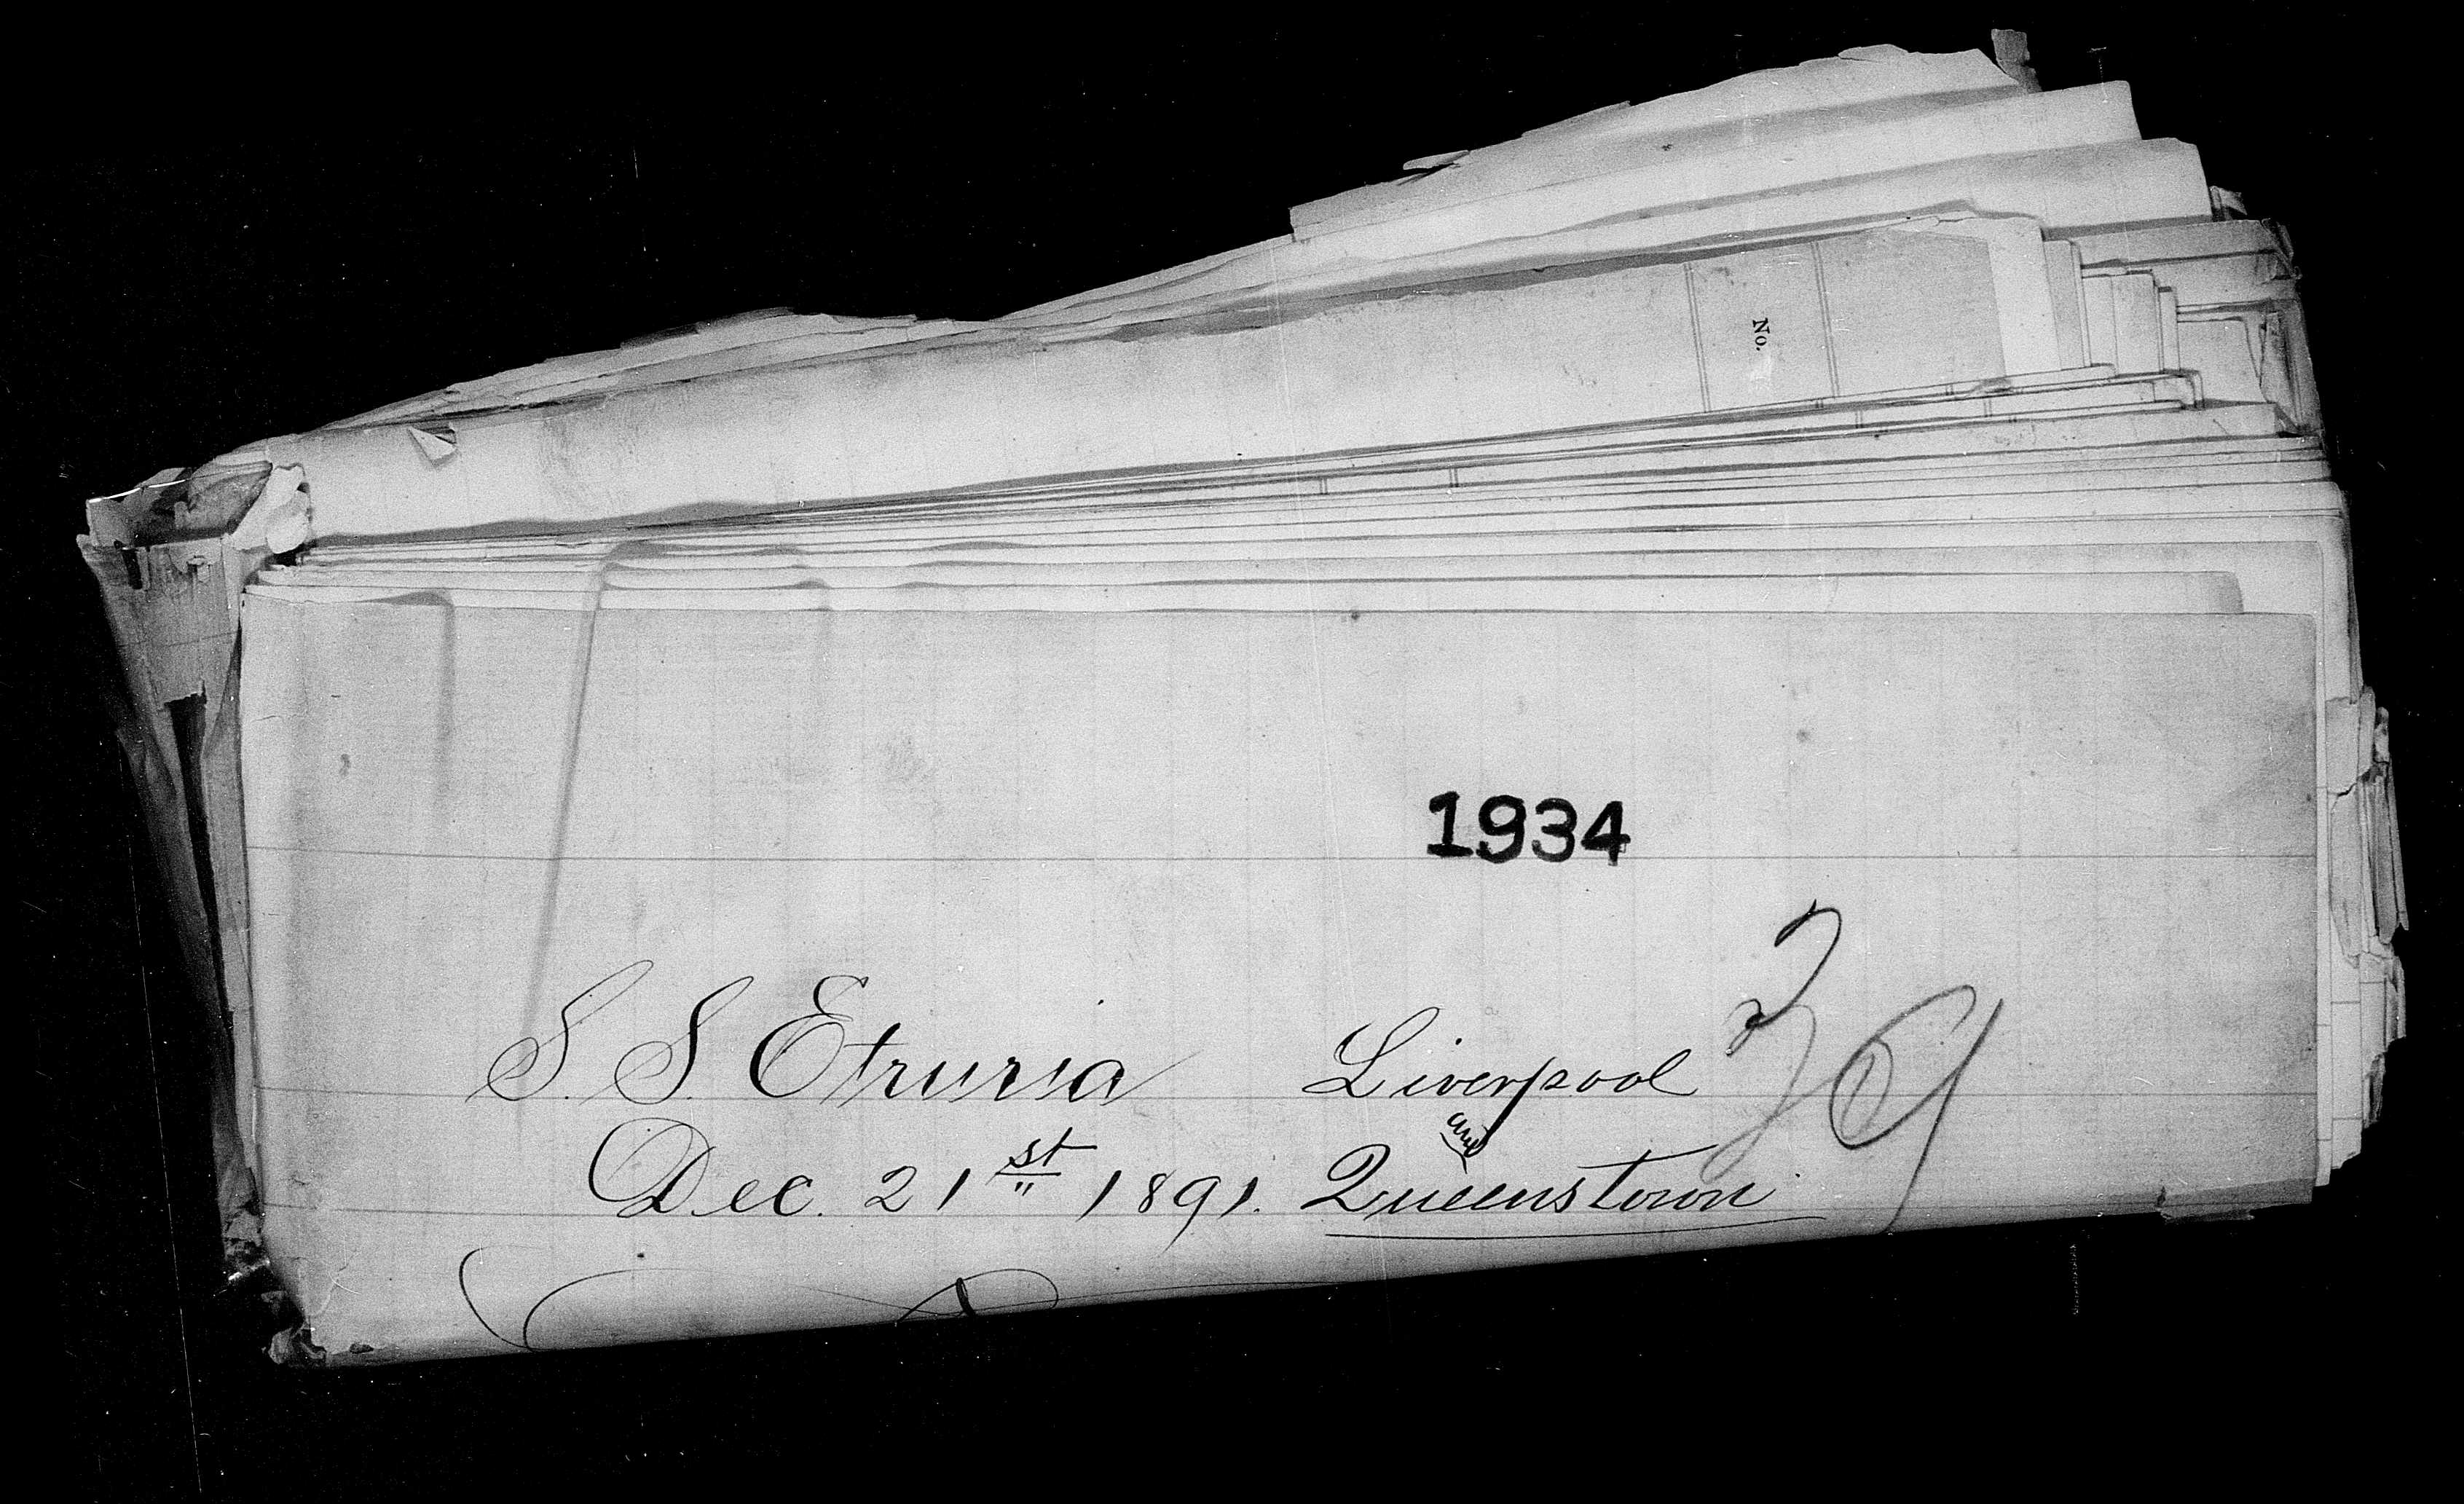 No.
1934
S. S. Etruria Liverpool
and
Dec. 21st 1891. Queenstown